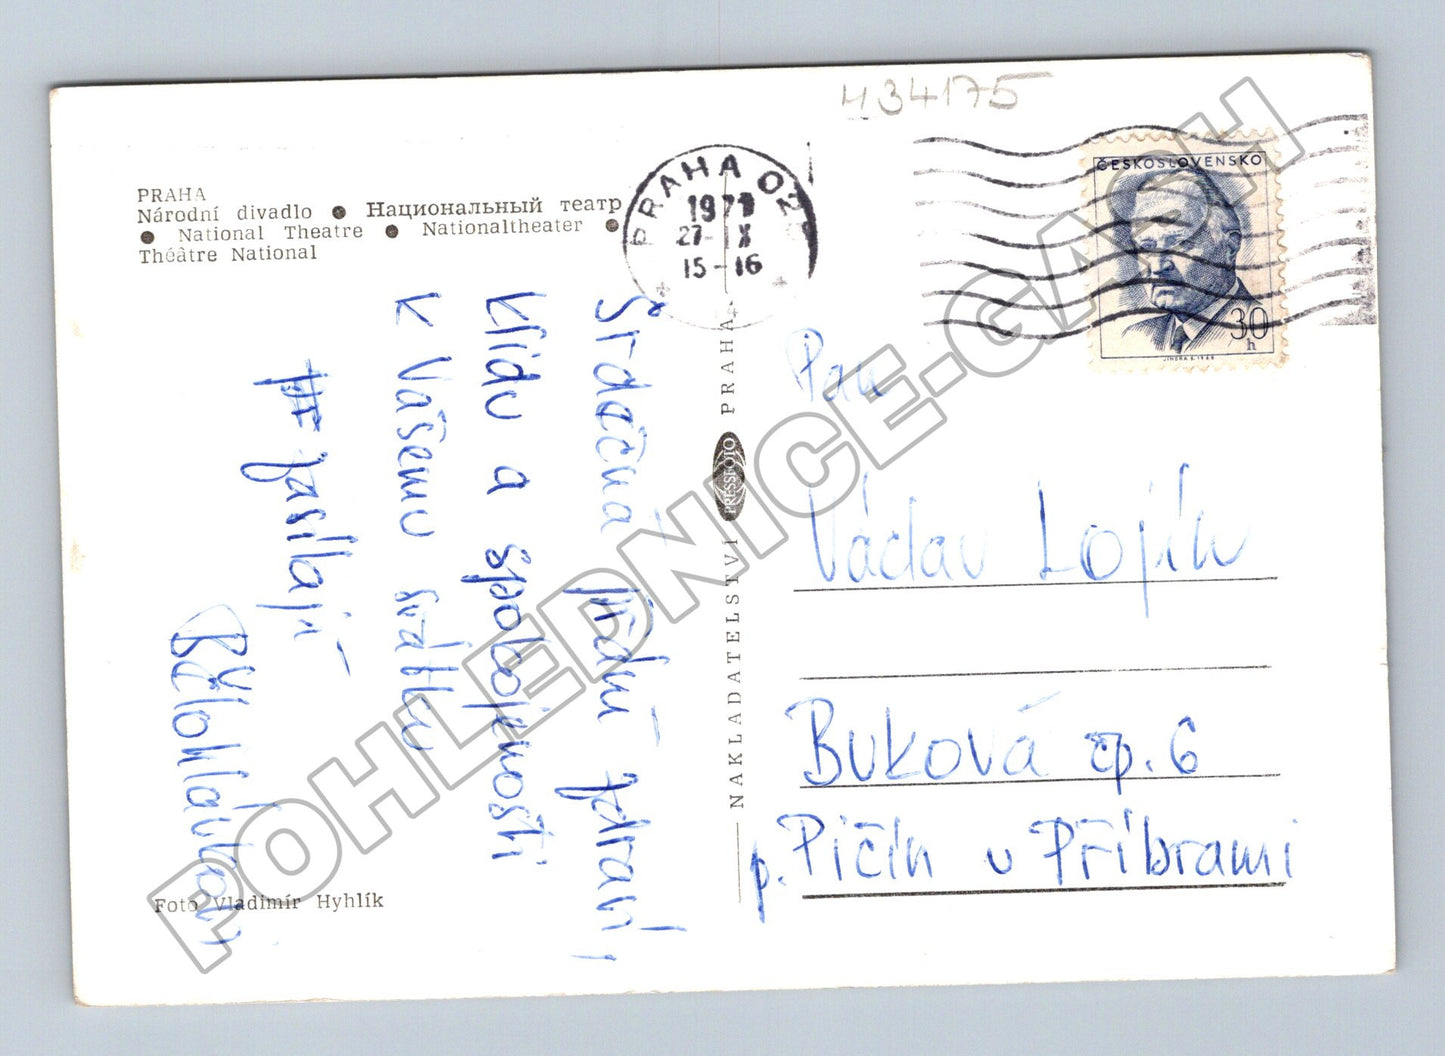 434175
PRAHA
Národní divadlo ● Национальный театр
● National Theatre ● Nationaltheater ●
Théâtre National
PRAHA 02
1979
27. IX
15-16
ČESKOSLOVENSKO
30
h
JINDRA S. 1968
Srdečná přání zdraví,
klidu a spokojenosti
k Vašemu svátku
zasílají
Foto Vladimír Hyhlík
NAKLADATELSTVÍ PRESSFOTO PRAHA
Pan
Václav Lojín
Buková čp. 6
p. Pičín u Příbrami
POHLEDNICE-GASH